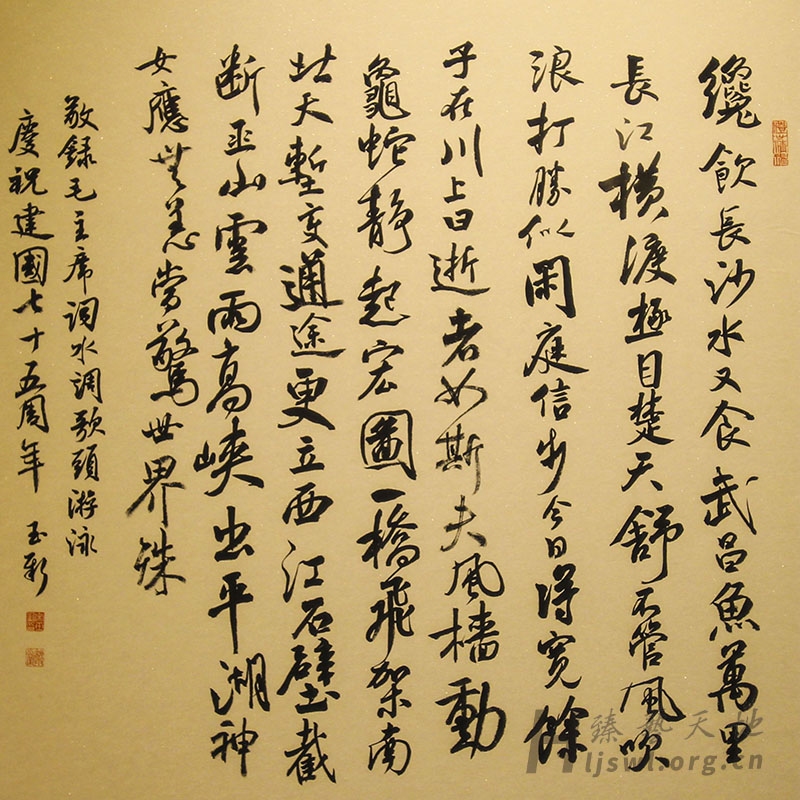 纔飲長沙水又食武昌魚萬里
長江橫渡極目楚天舒不管風吹
浪打勝似閑庭信步今日得寬餘
子在川上曰逝者如斯夫風檣動
龜蛇靜起宏圖一橋飛架南
北天塹変通途更立西江石壁截
断巫山雲雨高峽出平湖神
女應無恙當驚世界殊
敬録毛主席词水调歌頭游泳
慶祝建國七十五周年 玉
臻藝天地
ljswl.org.cn